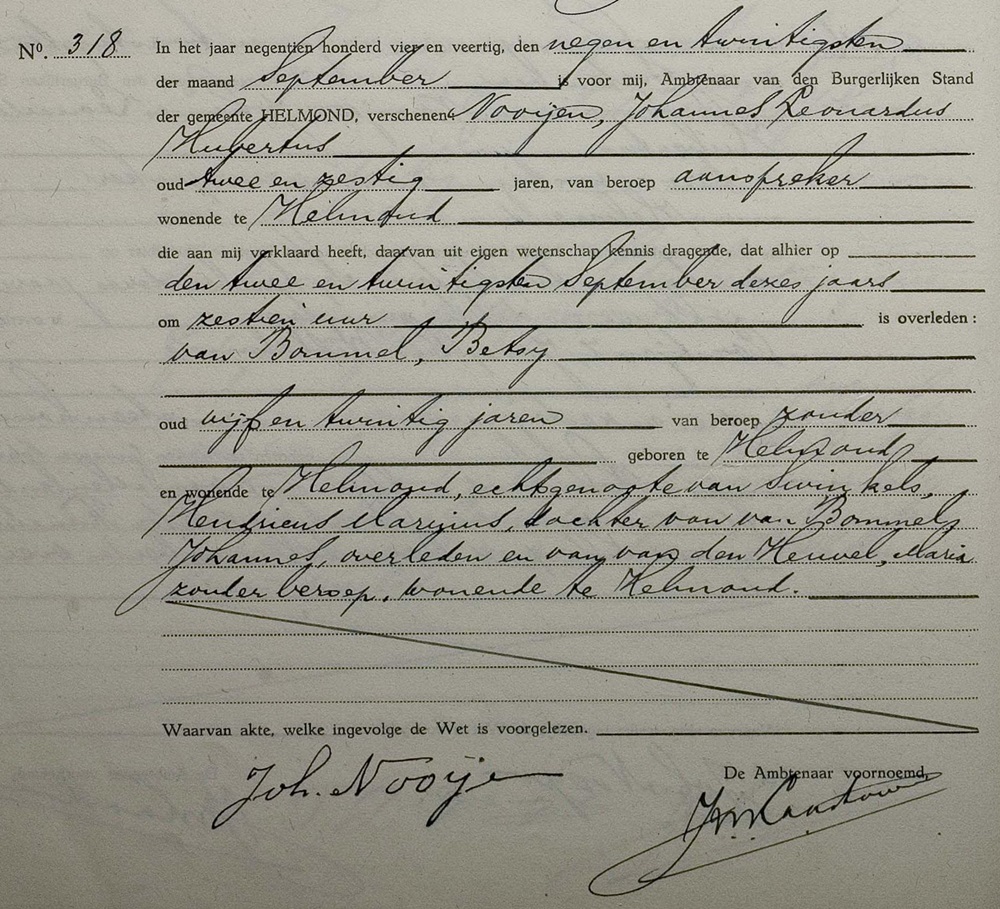 Nº. 318 In het jaar negentien honderd vier en veertig, den negen en twintigsten
der maand September is voor mij, Ambtenaar van den Burgerlijken Stand
der gemeente HELMOND, verschenen: Nooijen, Johannes Leonardus
Hubertus
oud twee en zestig jaren, van beroep aanspreker
wonende te Helmond
die aan mij verklaard heeft, daarvan uit eigen wetenschap kennis dragende, dat alhier op
den twee en twintigsten September dezes jaars
om zestien uur is overleden:
van Bommel, Betsy
oud vijf en twintig jaren van beroep zonder
geboren te Helmond
en wonende te Helmond, echtgenoote van Swinkels,
Hendricus Marinus, dochter van van Bommel,
Johannes, overleden en van van den Heuvel, Maria
zonder beroep, wonende te Helmond.
Waarvan akte, welke ingevolge de Wet is voorgelezen.
Joh. Nooije
De Ambtenaar voornoemd,